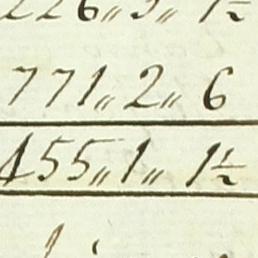 226„ 3„ 1½
771„ 2„ 6
455„ 1„ 1½